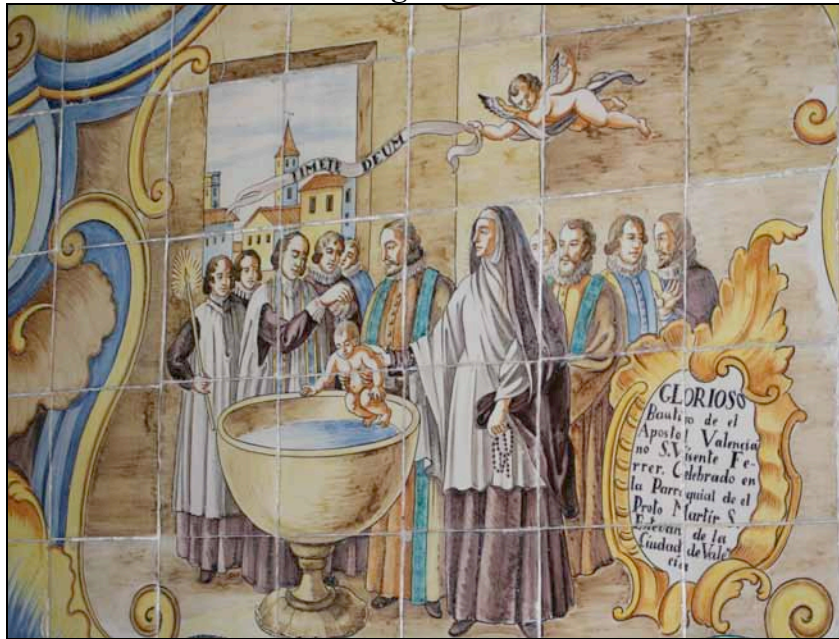 TIMETE DEUM
GLORIOSO
Bautiso de el
Apostol Valencia
no S. Visente Fe-
rrer. Celebrado en
la Parroquial de el
Proto Martir S.
Estevan de la
Ciudad de Valen
cia